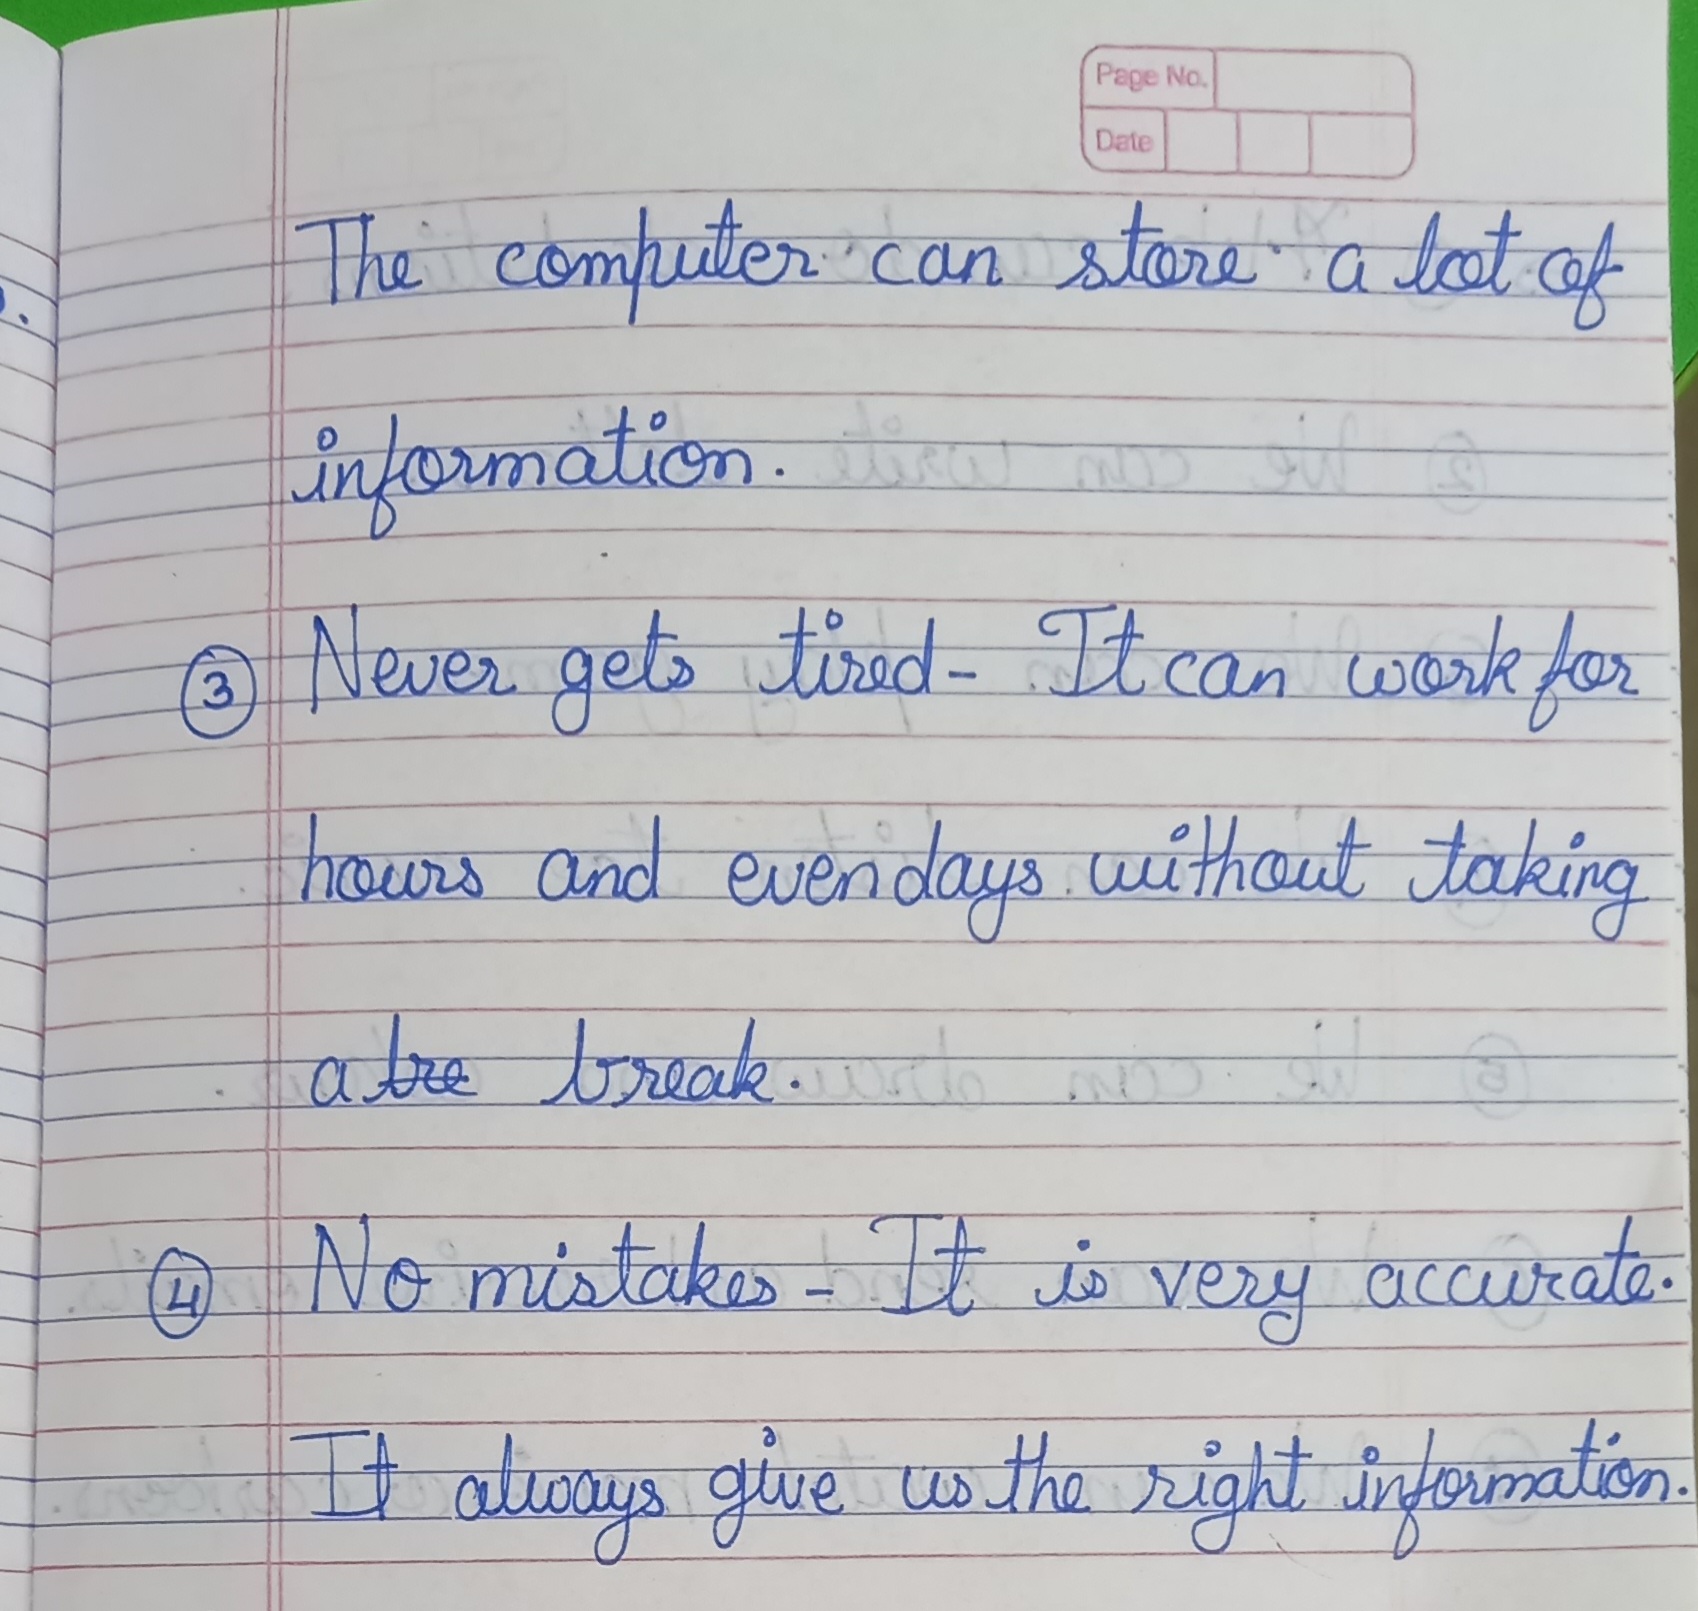 Page No.
Date
The computer can store a lot of
information.
③ Never gets tired - It can work for
hours and even days without taking
a bre break.
④ No mistakes - It is very accurate.
It always give us the right information.